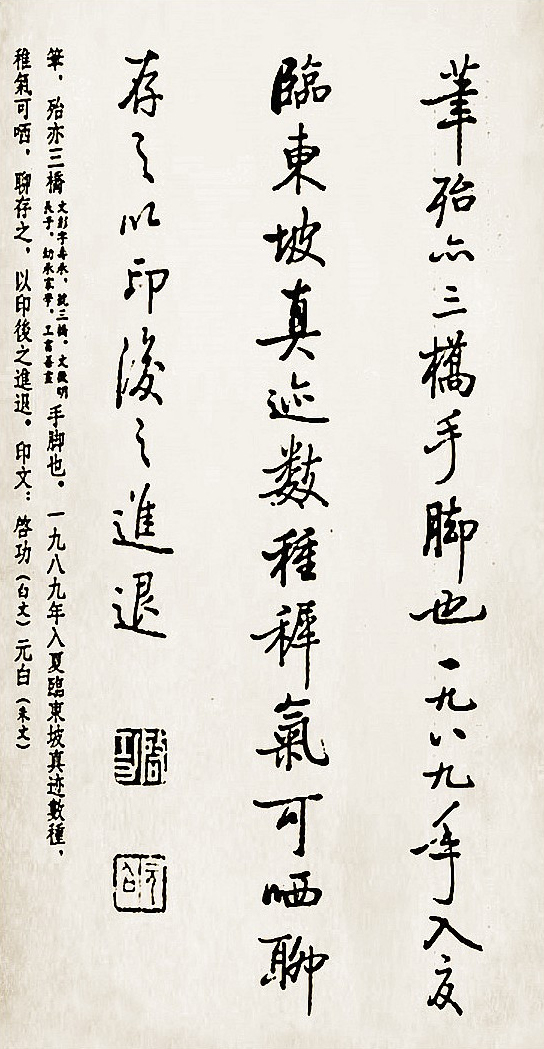 筆殆亦三橋手脚也一九八九年入夏
臨東坡真迹数種稺氣可哂聊
存之以印後之進退
啓功
元白
筆，殆亦三橋文彭字壽承，號三橋。文徵明
長子。幼承家學，工書善畫手脚也。一九八九年入夏臨東坡真迹數種，
稚氣可哂，聊存之，以印後之進退。印文：啓功（白文）元白（朱文）